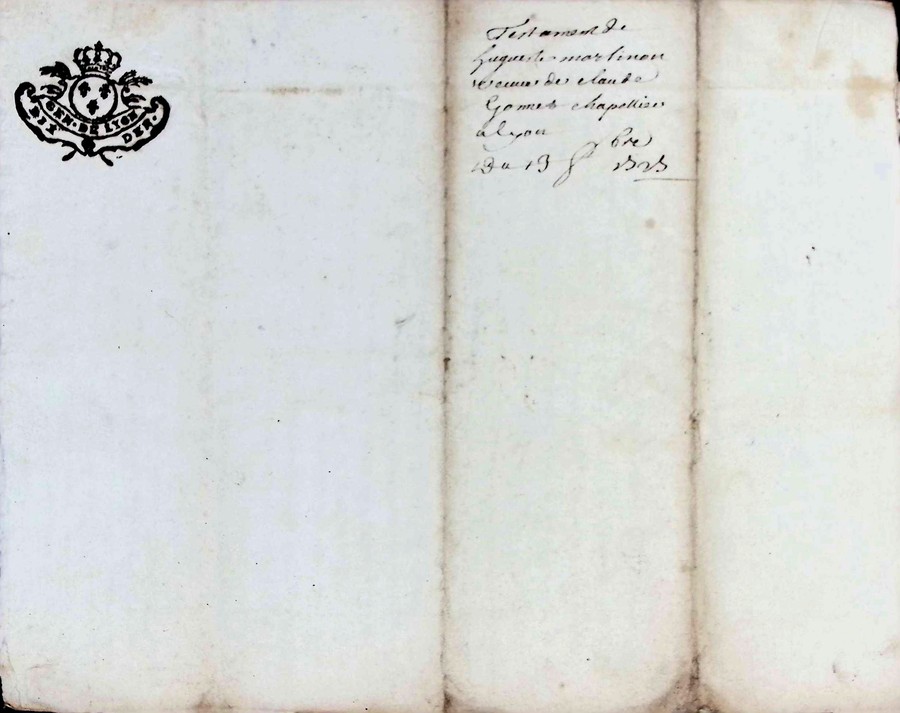 GEN · DE LYON
SIX DEN ·
Testament de
huguette martinon
veuve de claude
Gonnet chapellier
a lyon
Du 13 bre